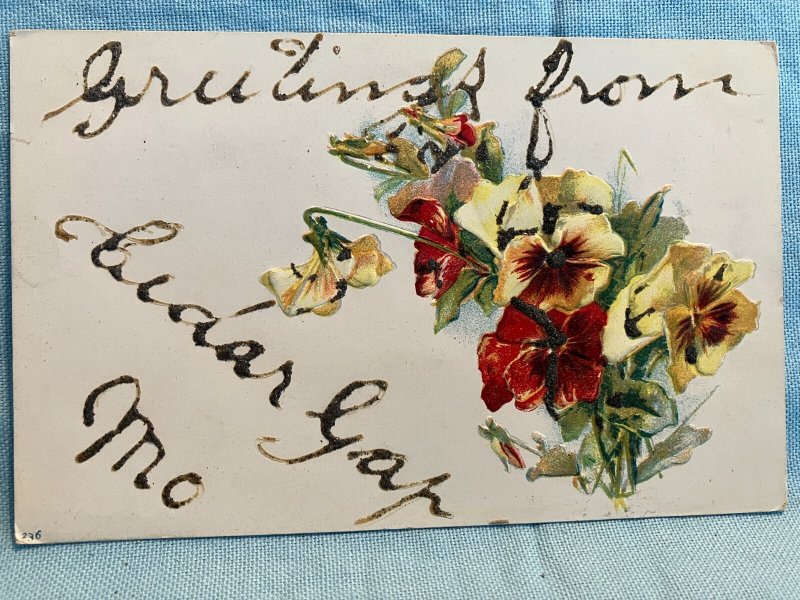 Greetings from
Cedar Gap
Mo
296